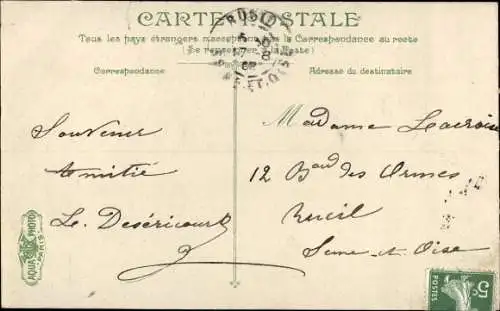 CARTE POSTALE
Tous les pays étrangers n'acceptent pas la Correspondance au recto
(Se renseigner à la Poste)
Correspondance
Adresse du destinataire
Souvenir
Amitié
Le Deséricourt
Madame Lacroix
12 Bard des Ormes
Rueil
Seine-et-Oise
AQUA PHOTO
PARIS
5c
POSTES